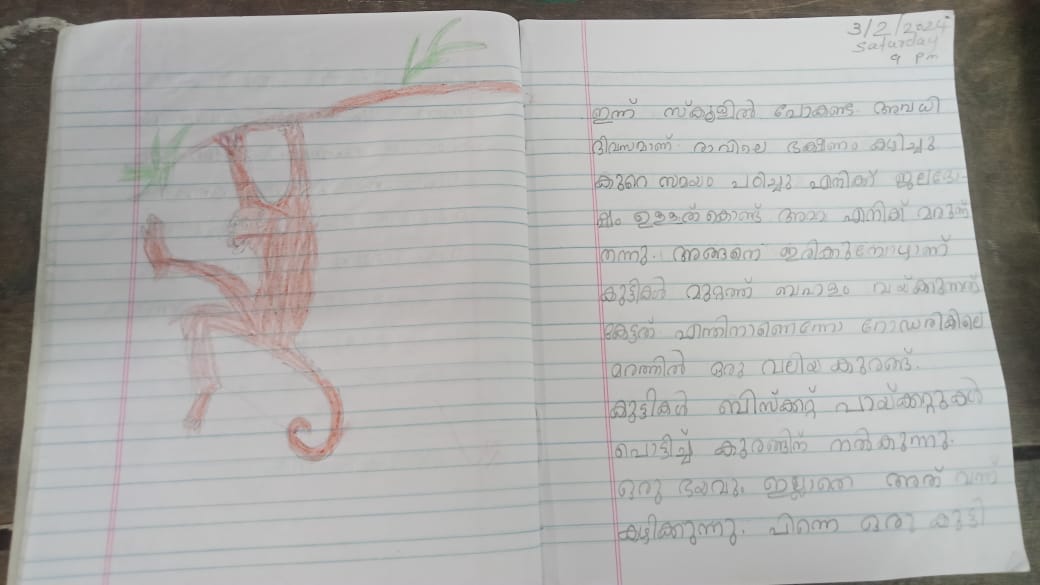 3/2/2024
Saturday
9 pm
ഇന്ന് സ്കൂളിൽ പോകണ്ട അവധി
ദിവസമാണ്. രാവിലെ ഭക്ഷണം കഴിച്ചു
കുറെ സമയം പഠിച്ചു എനിക്ക് ജലദോ-
ഷം ഉള്ളത്കൊണ്ട് അമ്മ എനിക്ക് മറുന്ന്
തന്നു. അങ്ങനെ ഇരിക്കുമ്പോഴാണ്
കുട്ടികൾ മുറ്റത്ത് ബഹളം വയ്ക്കുന്നത്
കേട്ടത് എന്തിനാണെന്നോ റോഡരികിലെ
മരത്തിൽ ഒരു വലിയ കുരങ്ങ്.
കുട്ടികൾ ബിസ്ക്കറ്റ് പായ്ക്കറ്റുകൾ
പൊട്ടിച്ച് കുരങ്ങിന് നൽകുന്നു.
ഒരു ഭയവും ഇല്ലാതെ അത് വന്ന്
കഴിക്കുന്നു. പിന്നെ ഒരു കുട്ടി